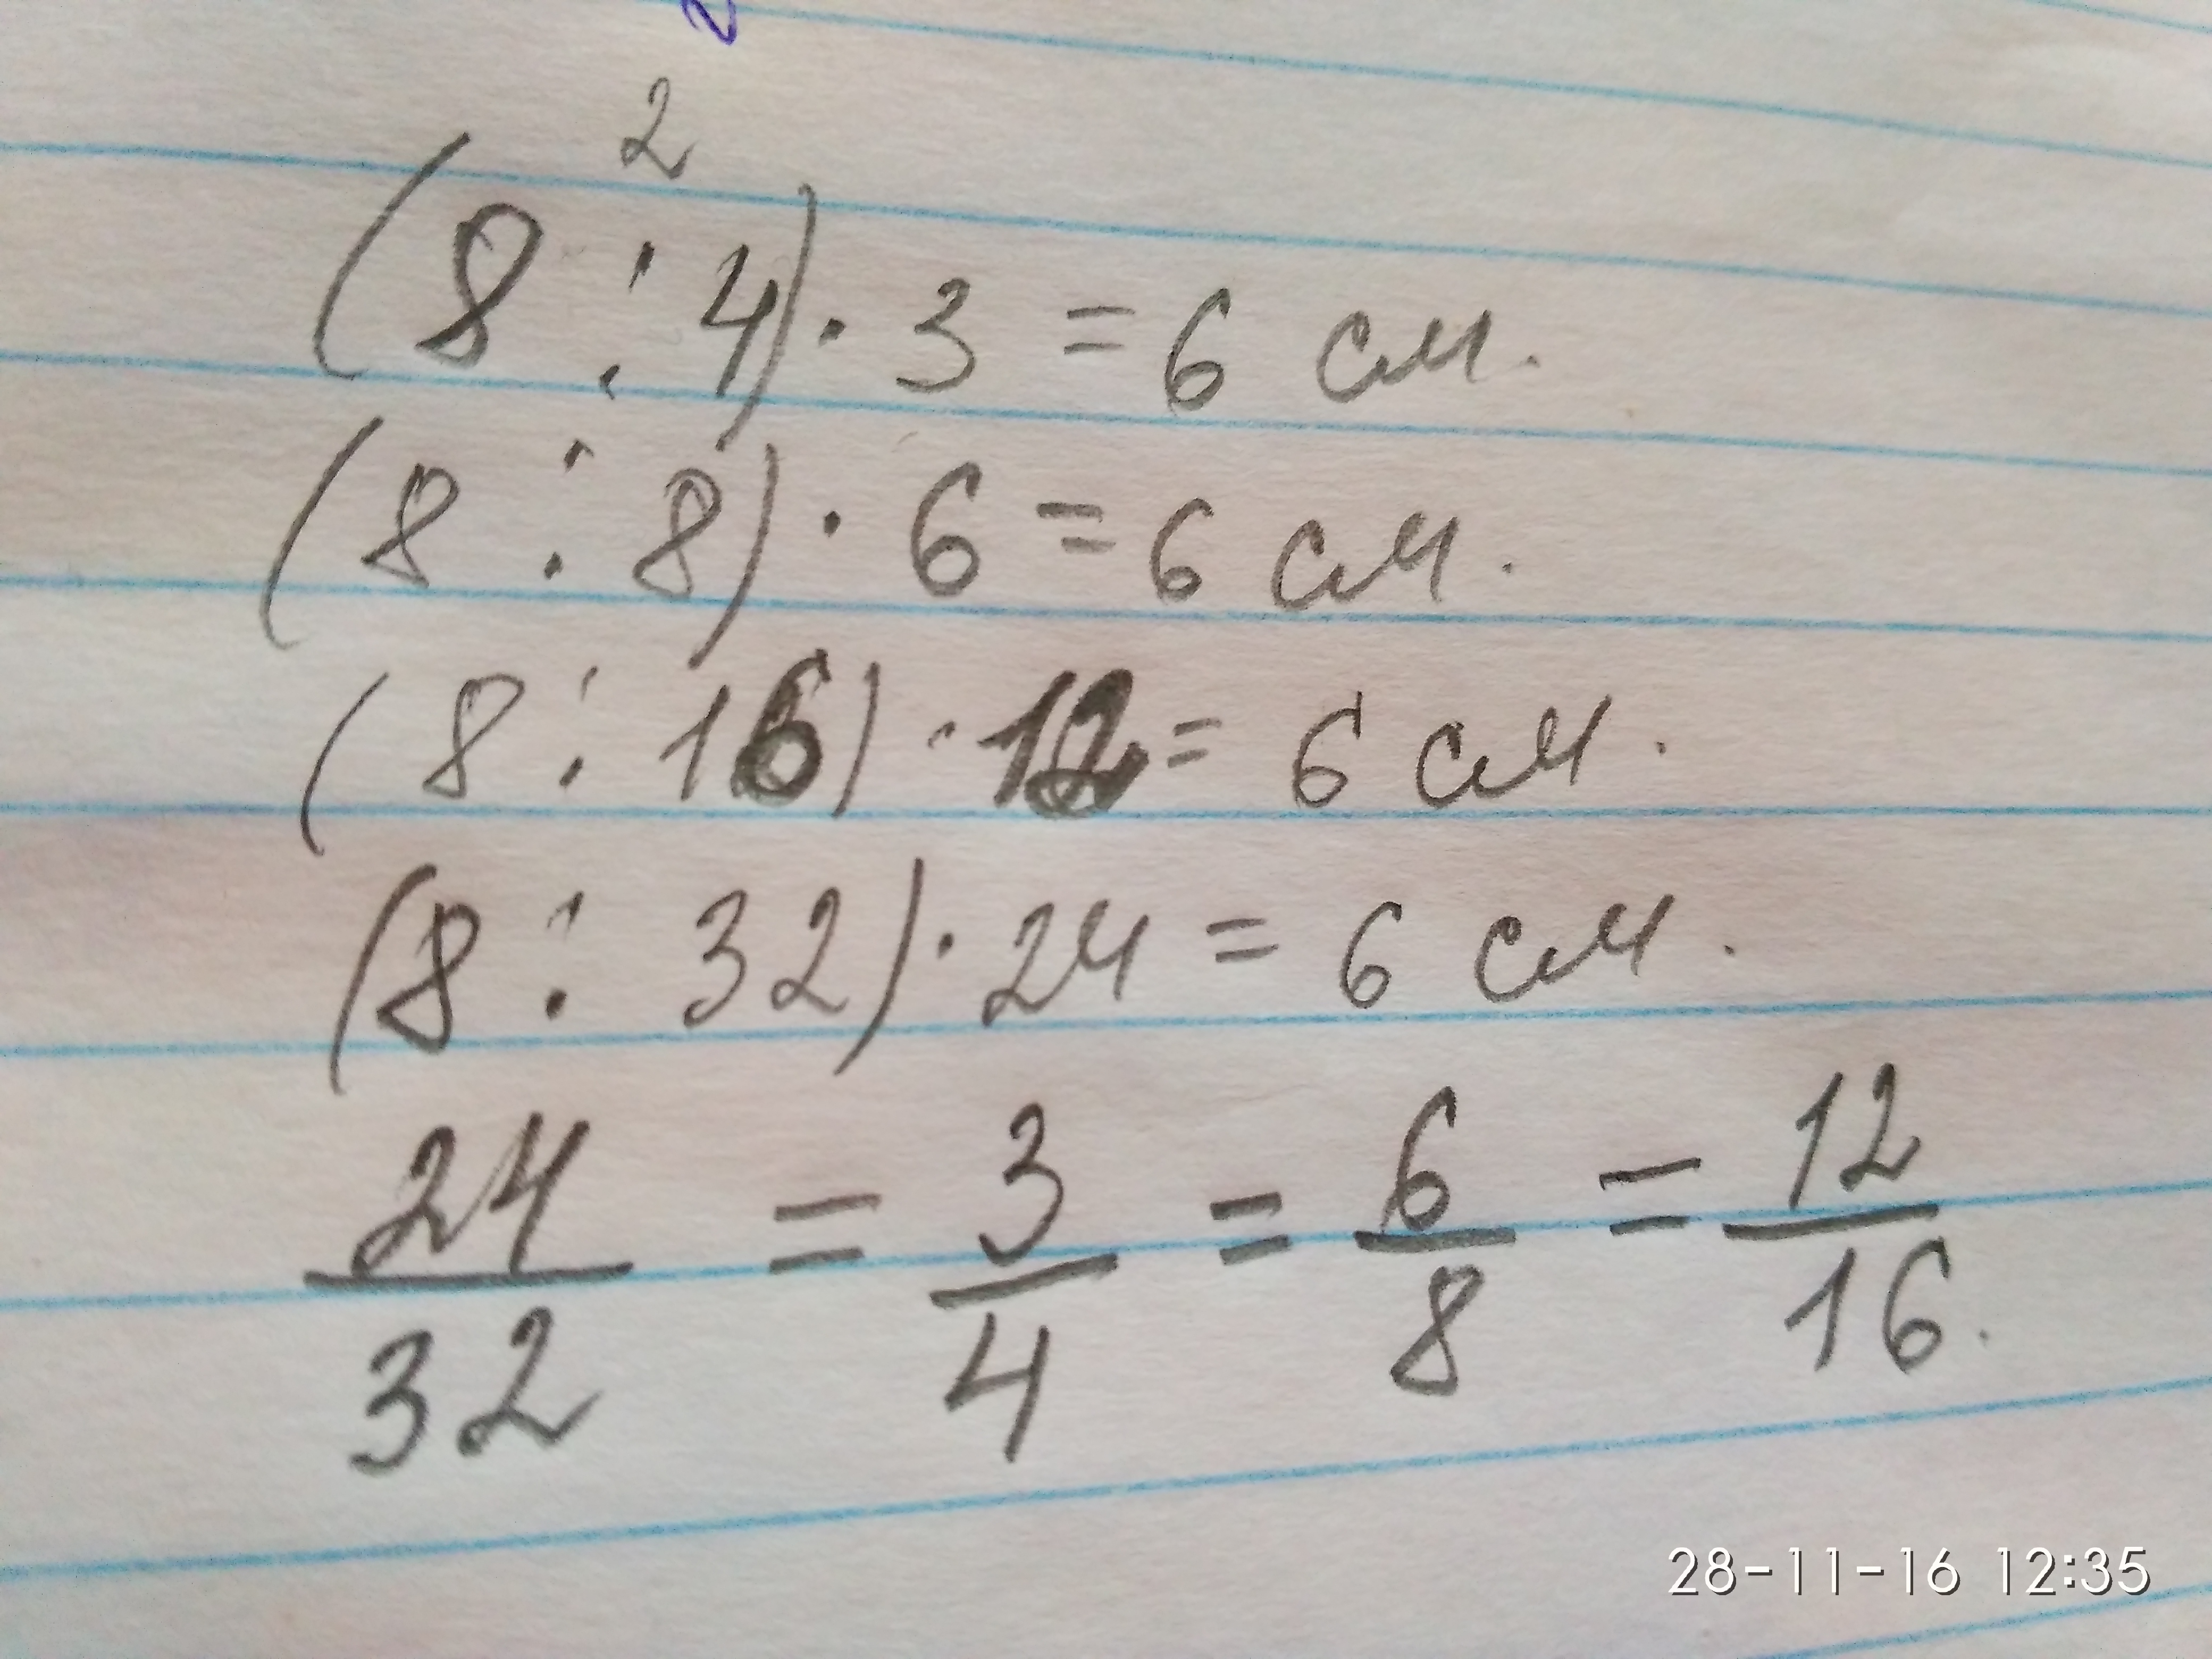 2
(8 : 4) · 3 = 6 см.
(8 : 8) · 6 = 6 см.
(8 : 16) · 12 = 6 см.
(8 : 32) · 24 = 6 см.
24/32 = 3/4 = 6/8 = 12/16.
28-11-16 12:35